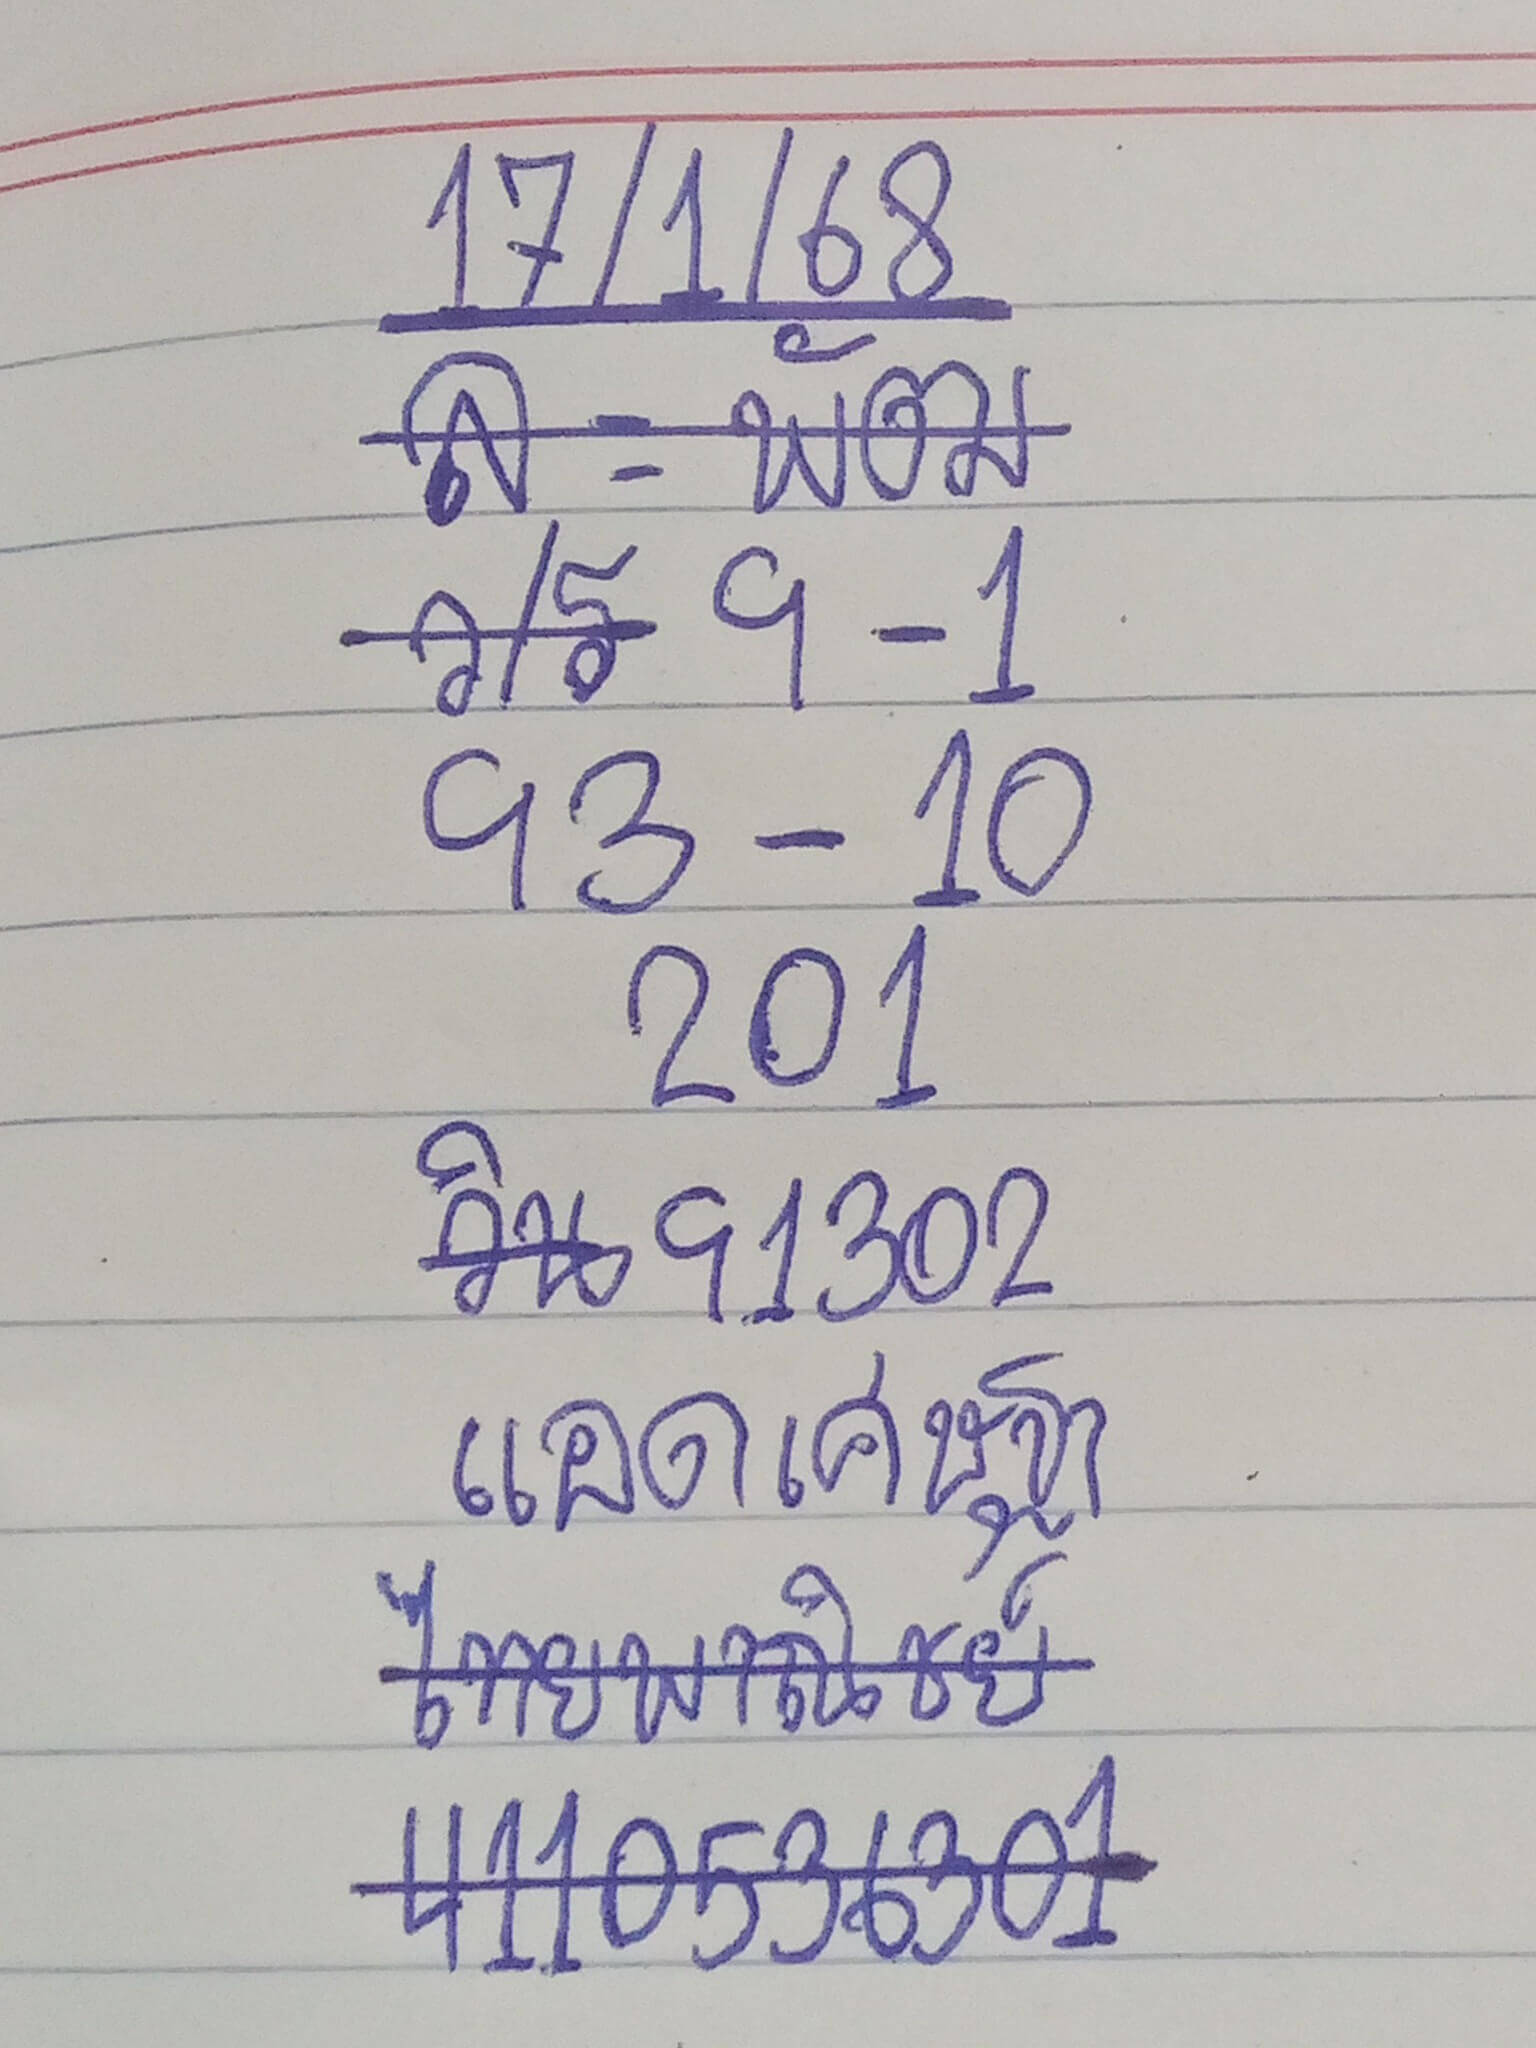 17/1/68
ล = พัอม
ว/ธ 9 - 1
93 - 10
201
วิน 91302
แอดเศษฐา
ไทยพาณิชย์
4110536301